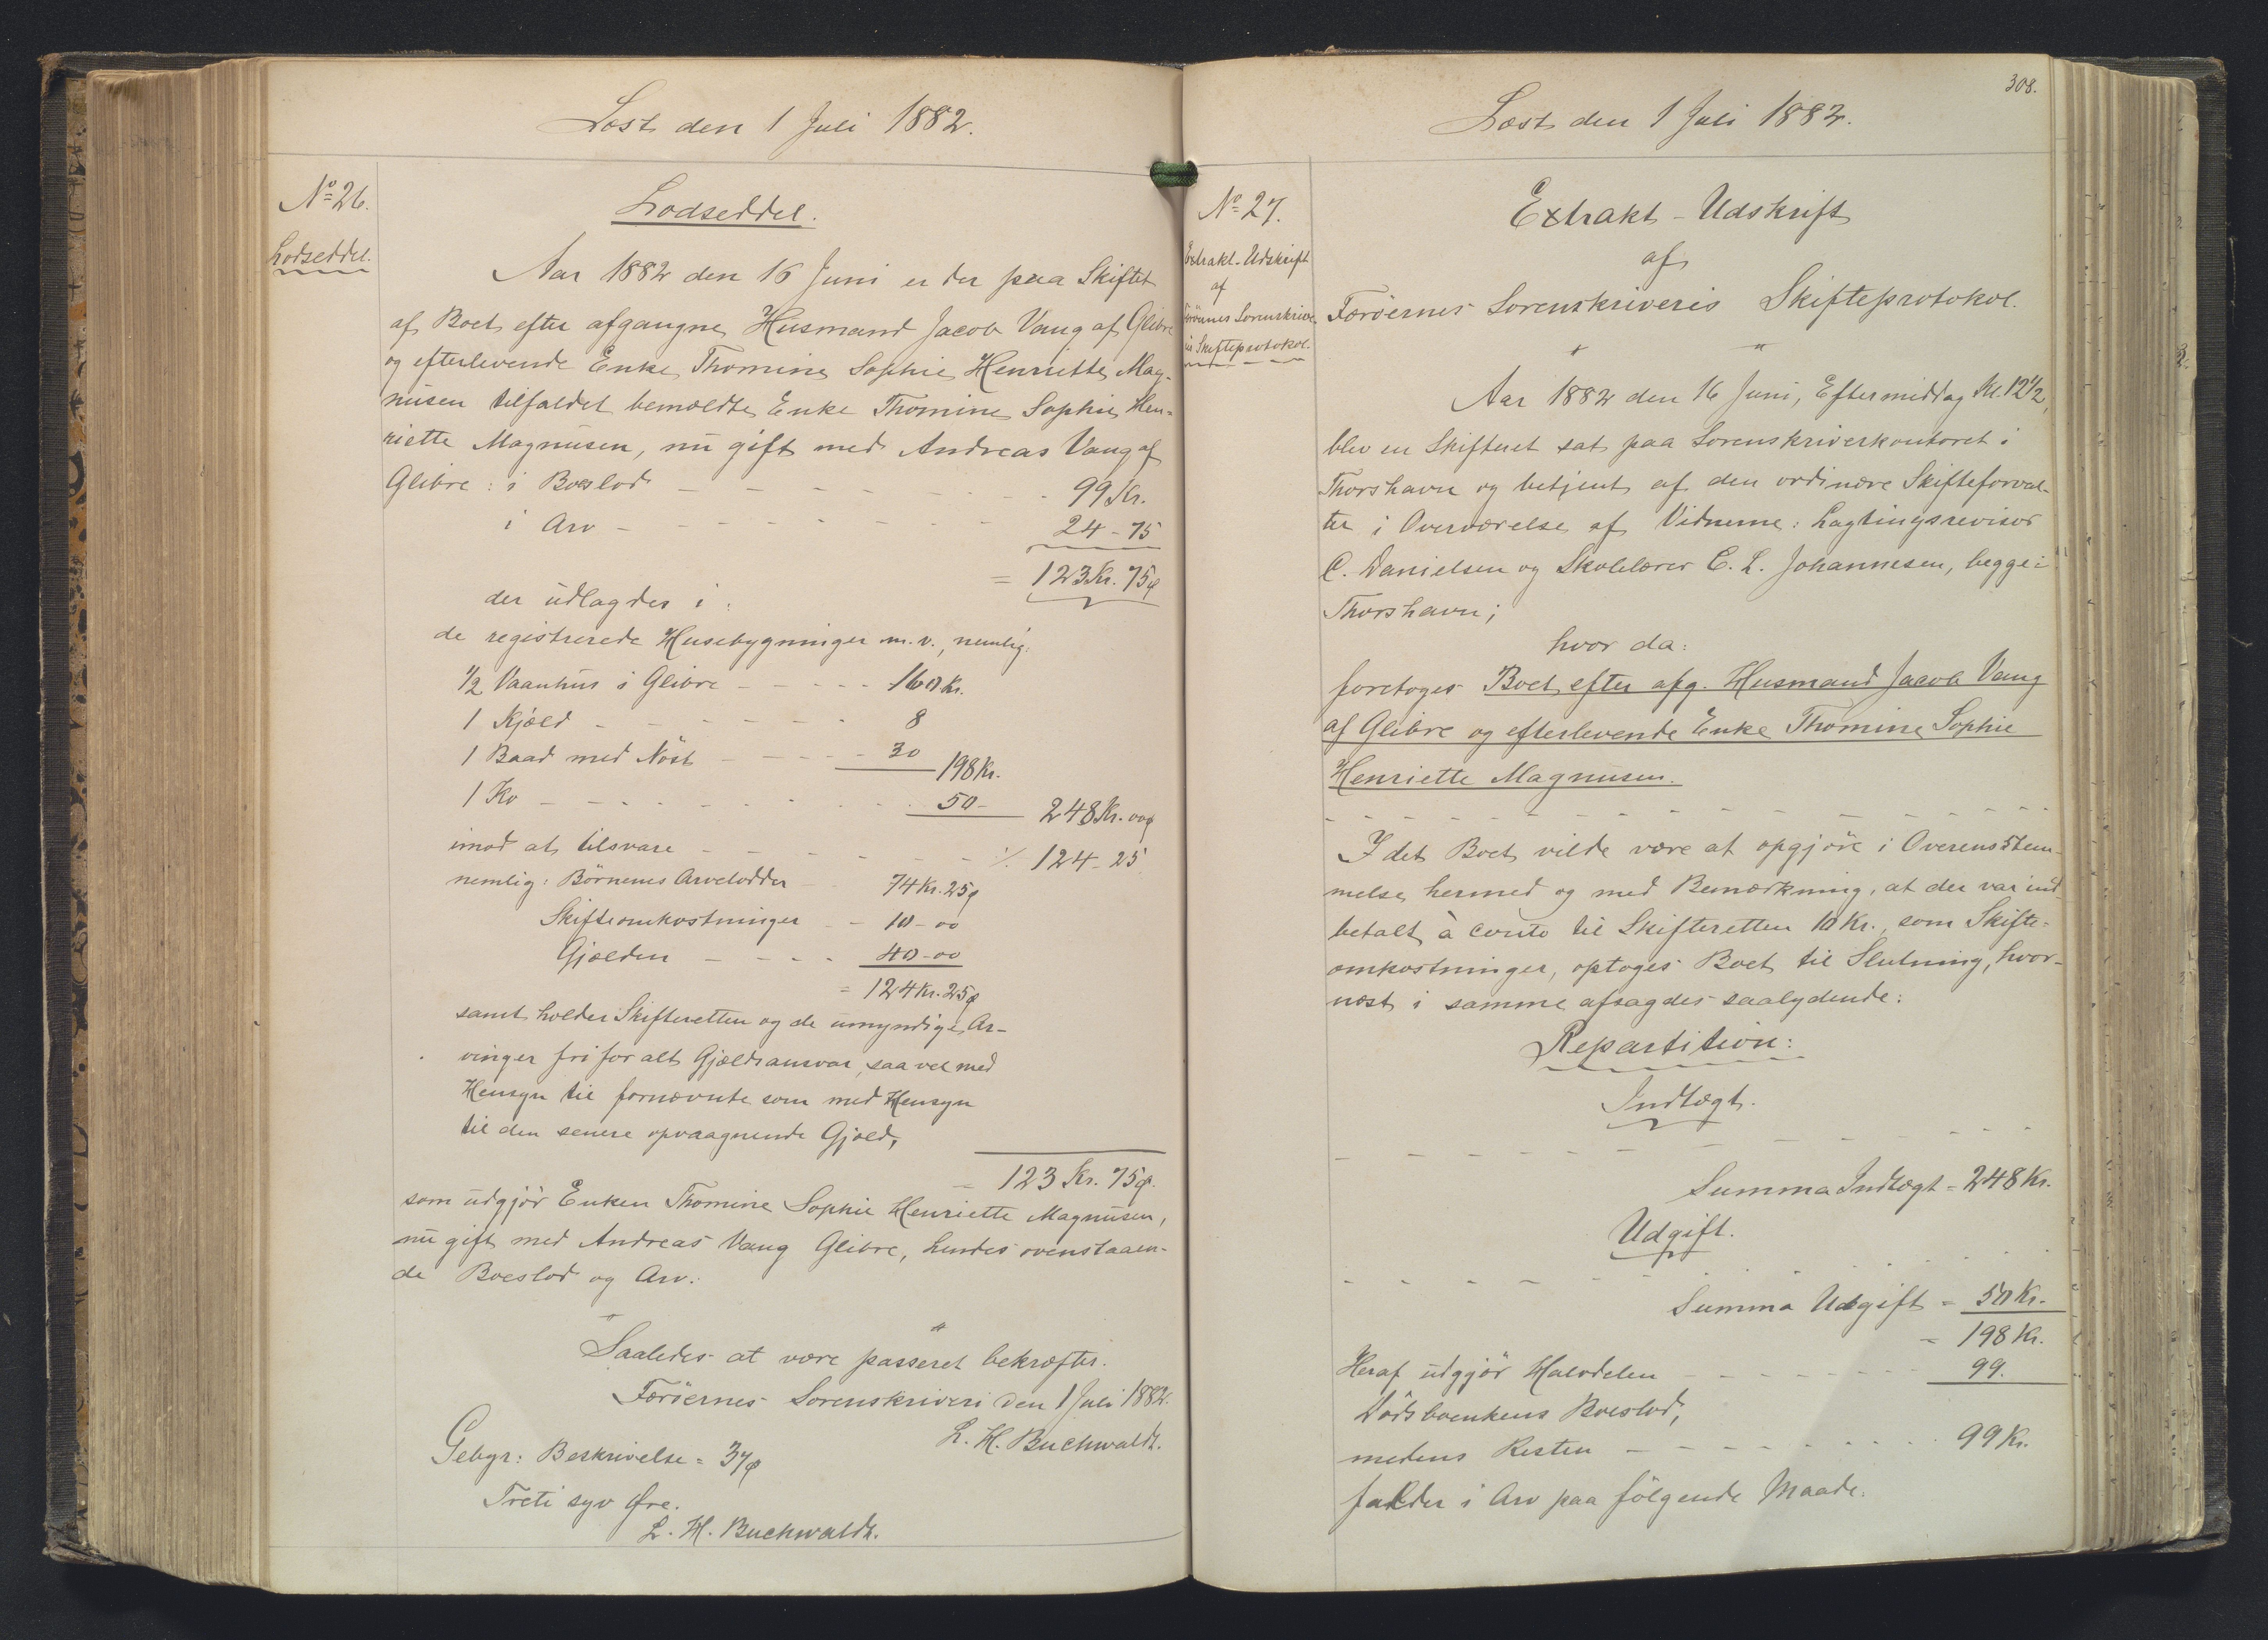 Læst den 1 Juli 1882.
No 26.
Lodseddel.
Lodseddel.
Aar 1882 den 16 Juni er der paa Skiftet
af Boet efter afgangne Husmand Jacob Vang af Glibre
og efterlevende Enke Thomine Sophie Henriette Mag-
nusen tilfaldet bemældte Enke Thomine Sophie Hen-
riette Magnusen, nu gift med Andreas Vang af
Glibre: i Boeslod - - - - 99 Kr.
i Arv - - - - 24 - 75
= 123 Kr. 75 ø
der udlagdes i:
de registrerede Husebygninger m.v., nemlig:
1/2 Vaanhus i Glibre - - - 160 Kr.
1 Kjæld - - - 8
1 Baad med Nöst - - - 30 198 Kr.
1 Ko - - - 50 - 248 Kr. 00 ø
imod at tilsvare - - - ./. 124 - 25
nemlig: Börnenes Arvelodder - 74 Kr. 25 ø
Skifteomkostninger - - 10 - 00
Gjælden - - - 40 - 00
= 124 Kr. 25 ø
samt holder Skifteretten og de umyndige Ar-
vinger fri for alt Gjældsansvar, saavel med
Hensyn til fornævnte som med Hensyn
til den senere opvaagnende Gjæld,
= 123 Kr. 75 ø.
som udgjör Enken Thomine Sophie Henriette Magnusen,
nu gift med Andreas Vang Glibre, hendes ovenstaaen-
de Boeslod og Arv.
" "
Saaledes at være passeret bekræftes.
Færöernes Sorenskriveri den 1 Juli 1882.
L. H. Buchwaldt.
Gebyr: Beskrivelse = 37 ø
Treti syv Øre.
L. H. Buchwaldt.
308.
Læst den 1 Juli 1882.
No 27.
Extrakt-Udskrift
af
Færöernes Sorenskrive-
ris Skifteprotokol.
Extrakt-Udskrift
af
Færöernes Sorenskriveris Skifteprotokol.
" "
Aar 1882 den 16 Juni, Eftermiddag Kl. 12 1/2,
blev en Skifteret sat paa Sorenskriverkontoret i
Thorshavn og betjent af den ordinære Skifteforval-
ter i Overværelse af Vidnerne: Lagtingsrevisor
C. Danielsen og Skolelærer C. L. Johannesen, begge i
Thorshavn;
hvor da:
foretoges Boet efter afg. Husmand Jacob Vang
af Glibre og efterlevende Enke Thomine Sophie
Henriette Magnusen.
- - - - - - - -
I det Boet vilde være at opgjöre i Overensstem-
melse hermed og med Bemærkning, at der var ind-
betalt à conto til Skifteretten 10 Kr., som Skifte-
omkostninger, optoges Boet til Slutning, hvor-
næst i samme afsagdes saalydende:
Repartition:
Indtægt.
- - - - - - - -
Summa Indtægt = 248 Kr.
Udgift.
- - - - - - - -
Summa Udgift = 50 Kr.
= 198 Kr.
Heraf udgjör Halvdelen - - - - 99.
Dödsboenkens Boeslod,
medens Resten - - - - 99 Kr.
falder i Arv paa fölgende Maade.